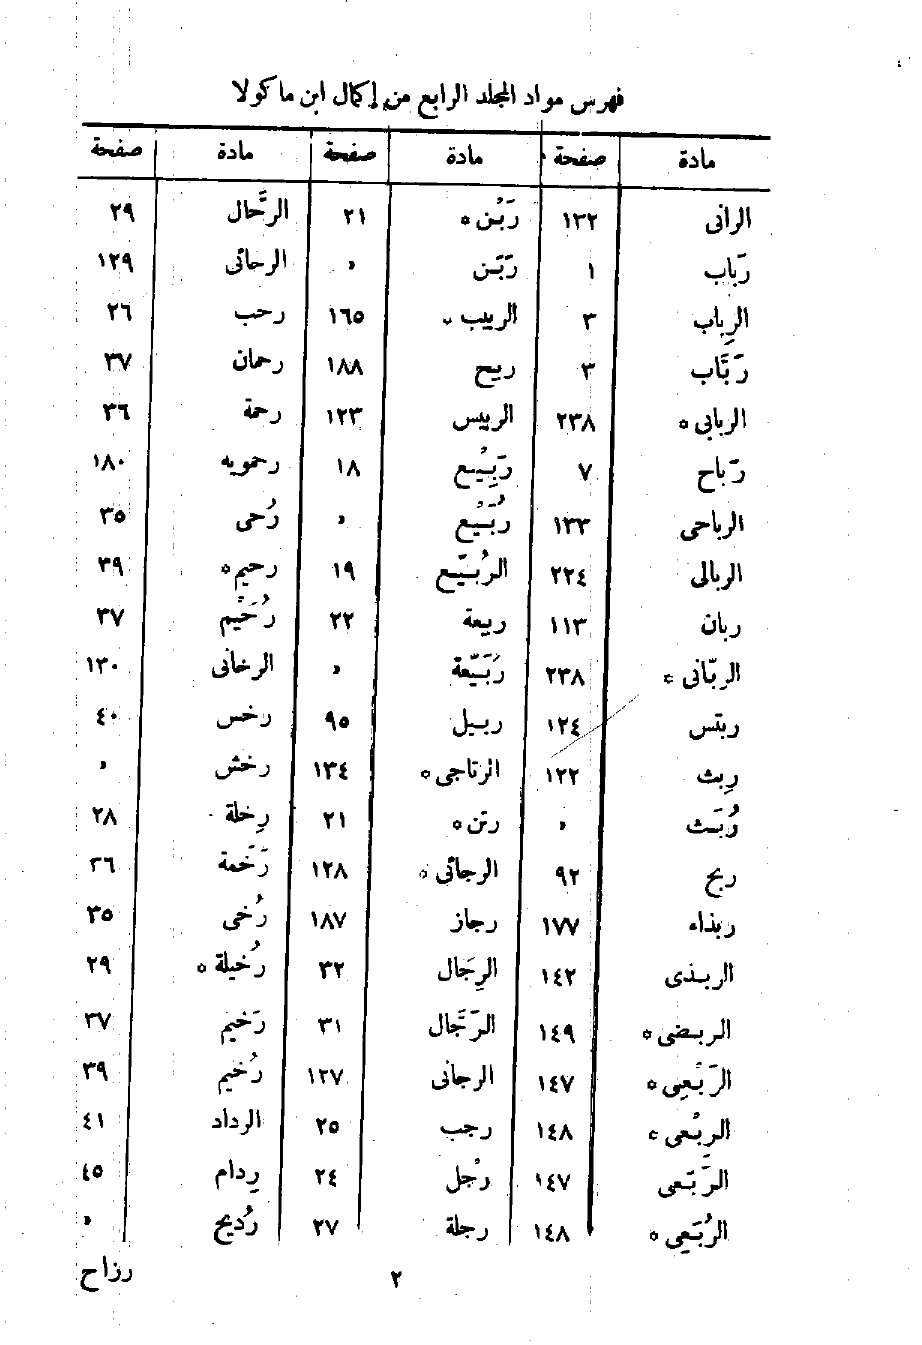 فهرس مواد المجلد الرابع من إكمال ابن ماكولا
مادة صفحة مادة صفحة مادة صفحة
الرانى ١٣٢ رَبْن * ٢١ الرحَّال ٢٩
رَباب ١ رَبَن » الرحائى ١٢٩
الرِباب ٣ الربيب * ١٦٥ رحب ٢٦
رَبَّاب ٣ ربيح ١٨٨ رحمان ٣٧
الربابى * ٢٣٨ الربيس ١٢٣ رحمة ٣٦
رَباح ٧ رَبِيع ١٨ رحمويه ١٨٠
الرباحى ١٣٣ رُبَيع » رُحى ٣٥
الربالى ٢٢٤ الرُبَيّع ١٩ رحيم * ٣٩
ربان ١١٣ ربيعة ٢٢ رُحَيْم ٣٧
الربّانى * ٢٣٨ رُبَيّعة » الرخانى ١٣٠
ربتس ١٢٤ ربيل ٩٥ رخس ٤٠
رِبث ١٢٢ الرتاجى * ١٣٤ رخش »
رُبَث » رتن * ٢١ رِخلة ٢٨
ربح ٩٢ الرجائى * ١٢٨ رَخَمة ٢٦
ربذاء ١٧٧ رجاز ١٨٧ رُخى ٣٥
الربذى ١٤٢ الرِجَال ٣٢ رُخيلة * ٢٩
الربضى * ١٤٩ الرَجَّال ٣١ رَخيم ٣٧
الرَبْعِى * ١٤٧ الرجانى ١٢٧ رُخيم ٣٩
الربْعى * ١٤٨ رجب ٢٥ الرداد ٤١
الرَّبَعى ١٤٧ رجْل ٢٤ رِدام ٤٥
الرُبَعِى * ١٤٨ رجلة ٢٧ رُديح »
٢ رزاح